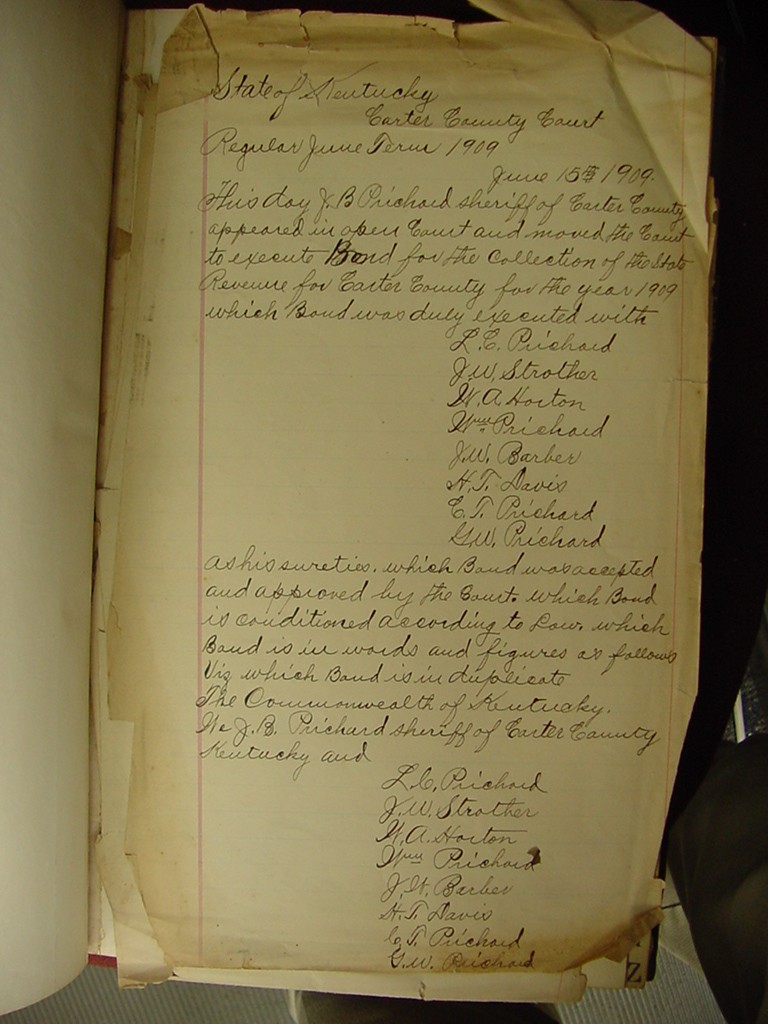 State of Kentucky
Carter County Court
Regular June Term 1909
June 15th 1909.
This day J. B Prichard sheriff of Carter County
appeared in open Court and moved the Court
to execute Bond for the Collection of the State
Revenue for Carter County for the year 1909
which Bond was duly executed with
L. C. Prichard
J. W. Strother
W. A Horton
Wm Prichard
J. W. Barber
H. T. Davis
E. T. Prichard
G. W. Prichard
as his sureties. which Bond was accepted
and approved by the Court. which Bond
is conditioned according to Law. which
Bond is in words and figures as follows
Viz which Bond is in duplicate
The Commonwealth of Kentucky.
We J. B. Prichard sheriff of Carter County
Kentucky and
L. C. Prichard
J. W. Strother
W. A. Horton
Wm Prichard
J. W. Barber
H. T. Davis
E. T. Prichard
G. W. Prichard
Z